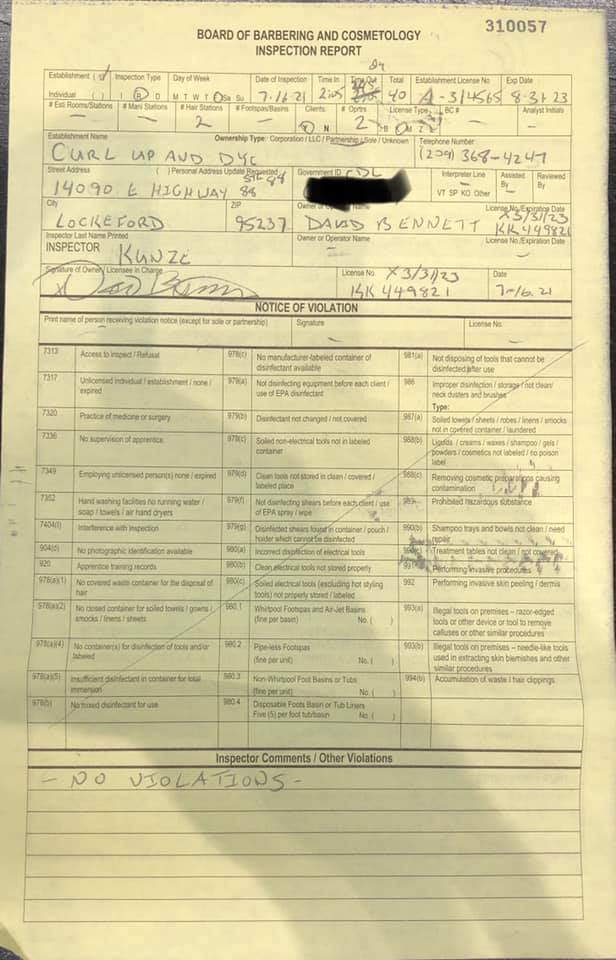 310057
BOARD OF BARBERING AND COSMETOLOGY
INSPECTION REPORT
Establishment ( ) Inspection Type Day of Week Date of Inspection Time In Time Out Total Establishment License No Exp Date
Individual ( ) I R D M T W T F Sa Su 7-16-21 2:05 40 A-314565 8-31-23
# Esti Rooms/Stations # Mani Stations # Hair Stations # Footspas/Basins Clients: # Oprtrs License Type BC # Analyst Initials
2 Y N 2
Establishment Name Ownership Type: Corporation / LLC / Partnership / Sole / Unknown Telephone Number
CURL UP AND DYE (209) 368-4247
Street Address ( ) Personal Address Update Requested Government ID CDL Interpreter Line Assisted By Reviewed By
14090 E HIGHWAY 88 STE VT SP KO Other
City ZIP Owner or Operator Name License No./Expiration Date
LOCKEFORD 95237 DAVID BENNETT X3/31/23
KK 449821
Inspector Last Name Printed Owner or Operator Name License No./Expiration Date
INSPECTOR KUNZE
Signature of Owner/ Licensee in Charge License No. X 3/31/23 Date
X KK 449821 7-16-21
NOTICE OF VIOLATION
Print name of person receiving violation notice (except for sole or partnership) Signature License No.
7313 Access to inspect / Refusal 978(c) No manufacturer-labeled container of disinfectant available 981(a) Not disposing of tools that cannot be disinfected after use
7317 Unlicensed individual / establishment / none / expired 979(a) Not disinfecting equipment before each client / use of EPA disinfectant 986 Improper disinfection / storage / not clean/ neck dusters and brushes
Type:
7320 Practice of medicine or surgery 979(b) Disinfectant not changed / not covered 987(a) Soiled towels / sheets / robes / linens / smocks not in covered container / laundered
7336 No supervision of apprentice 979(c) Soiled non-electrical tools not in labeled container 988(b) Liquids / creams / waxes / shampoo / gels / powders / cosmetics not labeled / no poison label
7349 Employing unlicensed person(s) none / expired 979(d) Clean tools not stored in clean / covered / labeled place 988(c) Removing cosmetic preparations causing contamination
7352 Hand washing facilities no running water / soap / towels / air hand dryers 979(f) Not disinfecting shears before each client / use of EPA spray / wipe 989 Prohibited hazardous substance
7404(l) Interference with inspection 979(g) Disinfected shears found in container / pouch / holder which cannot be disinfected 990(b) Shampoo trays and bowls not clean / need repair
904(d) No photographic identification available 980(a) Incorrect disinfection of electrical tools 990(c) Treatment tables not clean / not covered
920 Apprentice training records 980(b) Clean electrical tools not stored properly 991 Performing invasive procedures
978(a)(1) No covered waste container for the disposal of hair 980(c) Soiled electrical tools (excluding hot styling tools) not properly stored / labeled 992 Performing invasive skin peeling / dermis
978(a)(2) No closed container for soiled towels / gowns / smocks / linens / sheets 980.1 Whirlpool Footspas and Air-Jet Basins (fine per basin) No. ( ) 993(a) Illegal tools on premises – razor-edged tools or other device or tool to remove calluses or other similar procedures
978(a)(4) No container(s) for disinfection of tools and/or labeled 980.2 Pipe-less Footspas (fine per unit) No. ( ) 993(b) Illegal tools on premises – needle-like tools used in extracting skin blemishes and other similar procedures
978(a)(5) Insufficient disinfectant in container for total immersion 980.3 Non-Whirlpool Foot Basins or Tubs (fine per unit) No. ( ) 994(b) Accumulation of waste / hair clippings
978(b) No mixed disinfectant for use 980.4 Disposable Foots Basin or Tub Liners Five (5) per foot tub/basin No. ( )
Inspector Comments / Other Violations
- NO VIOLATIONS -